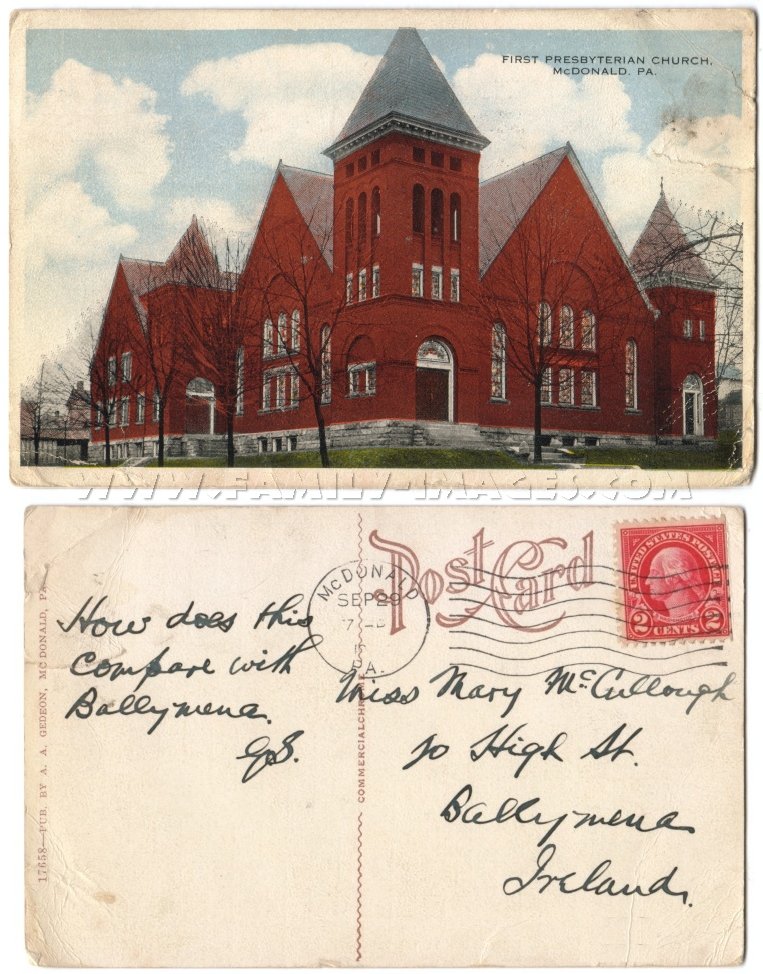 FIRST PRESBYTERIAN CHURCH,
McDONALD, PA.
WWW.FAMILY-IMAGES.COM
Post Card
McDONALD
SEP 29
PA.
UNITED STATES POSTAGE
2 CENTS 2
How does this
Compare with
Ballymena.
GS.
Miss Mary McCullough
High St.
Ballymena
Ireland.
17658—PUB. BY A. A. GEDEON, MC DONALD, PA.
COMMERCIALCHROME